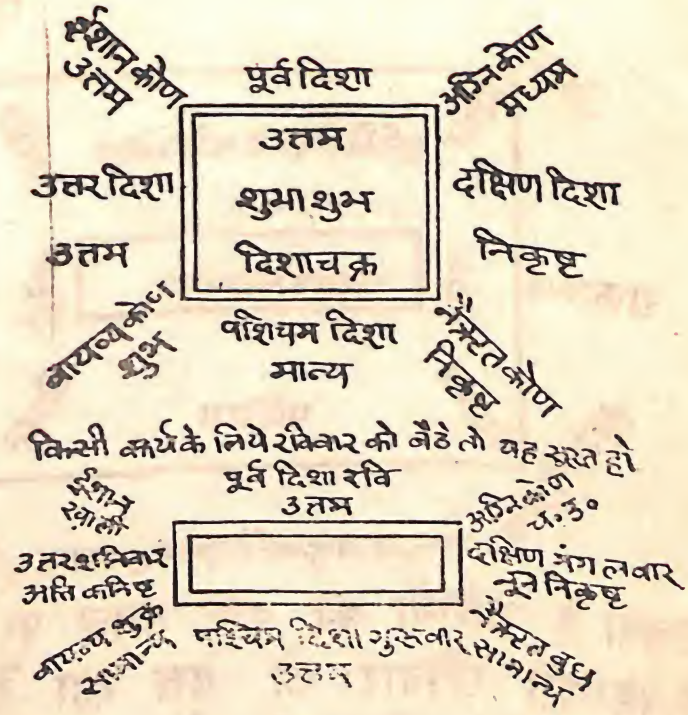 ईशान कोण
उत्तम
पूर्व दिशा
अग्नि कोण
मध्यम
उत्तम
उत्तर दिशा
शुभाशुभ
दक्षिण दिशा
उत्तम
दिशाचक्र
निकृष्ट
वायव्य कोण
शुभ
पश्चिम दिशा
मान्य
नैऋत कोण
निकृष्ट
किसी कार्य के लिये रविवार को बैठे तो यह सूरत हो
पूर्व दिशा रवि
उत्तम
ईशान
खाली
अग्नि कोण
च. उ०
उत्तर शनिवार
अति कनिष्ट
दक्षिण मंगलवार
निकृष्ट
वायव्य शुक्र
सामान्य
पश्चिम दिशा गुरुवार
उत्तम
नैऋत बुध
सामान्य